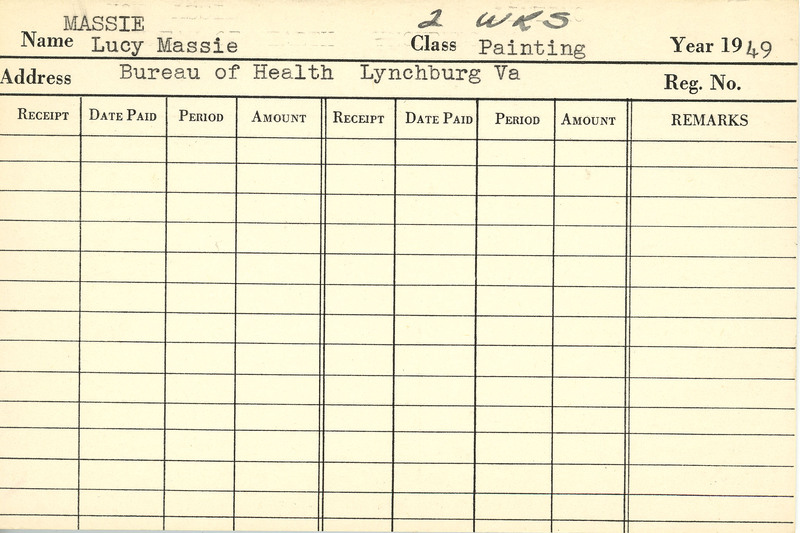 MASSIE 2 WKS
Name Lucy Massie Class Painting Year 1949
Address Bureau of Health Lynchburg Va Reg. No.
RECEIPT DATE PAID PERIOD AMOUNT RECEIPT DATE PAID PERIOD AMOUNT REMARKS